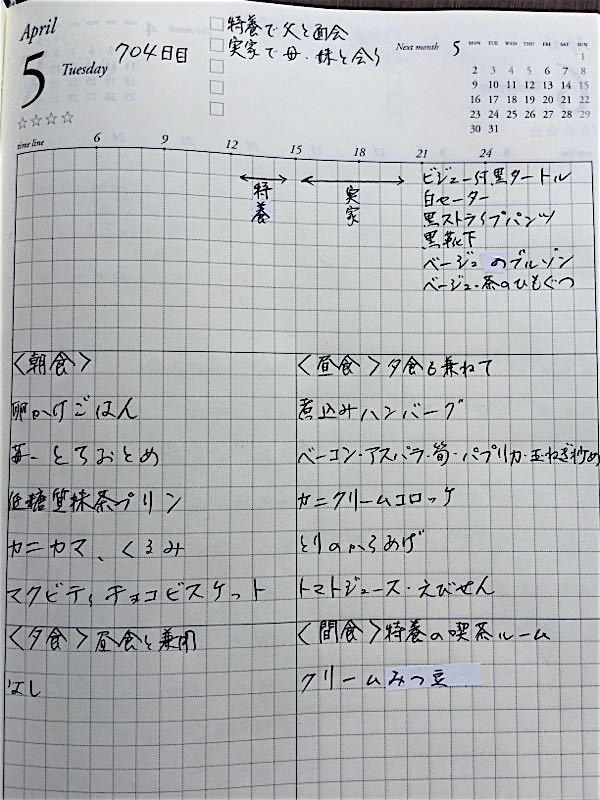 April
5
Tuesday
704日目
特養で父と面会
実家で母・妹と会う
Next month 5
MON TUE WED THU FRI SAT SUN
1
2 3 4 5 6 7 8
9 10 11 12 13 14 15
16 17 18 19 20 21 22
23 24 25 26 27 28 29
30 31
time line 6 9 12 15 18 21 24
特養
実家
ビジュー付黒タートル
白セーター
黒ストライプパンツ
黒靴下
ベージュのブルゾン
ベージュ・茶のひもぐつ
<朝食>
卵かけごはん
苺―とちおとめ
低糖質抹茶プリン
カニカマ、くるみ
マクビティチョコビスケット
<昼食>夕食も兼ねて
煮込みハンバーグ
ベーコン・アスパラ・筍・パプリカ・玉ねぎ炒め
カニクリームコロッケ
とりのからあげ
トマトジュース・えびせん
<夕食>昼食と兼用
なし
<間食>特養の喫茶ルーム
クリームみつ豆